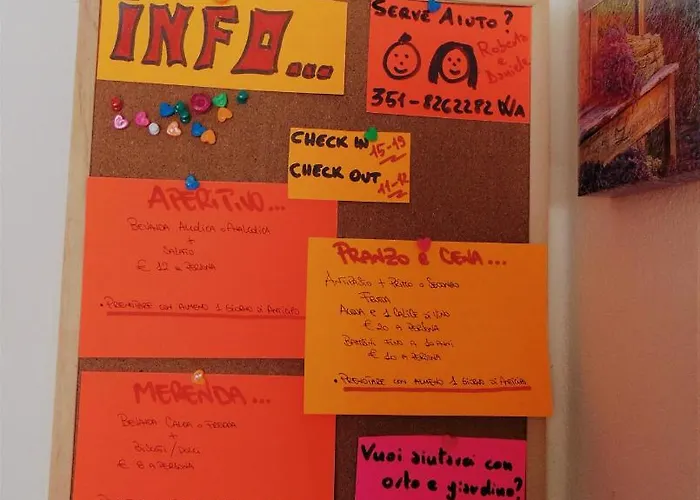 INFO...
SERVE AIUTO?
Roberta
e
Daniele
351-8262282 WA
CHECK IN 15-19
CHECK OUT 11-12
APERITIVO...
BEVANDA ALCOLICA O ANALCOLICA
+
SALATO
€ 12 A PERSONA
• PRENOTARE CON ALMENO 1 GIORNO DI ANTICIPO
PRANZO E CENA...
ANTIPASTO + PRIMO O SECONDO
FRUTTA
ACQUA E 1 CALICE DI VINO
€ 20 A PERSONA
BAMBINI FINO A 10 ANNI
€ 10 A PERSONA
• PRENOTARE CON ALMENO 1 GIORNO DI ANTICIPO
MERENDA...
BEVANDA CALDA O FREDDA
+
BISCOTTI/DOLCI
€ 8 A PERSONA
Vuoi aiutarci con
orto e giardino?